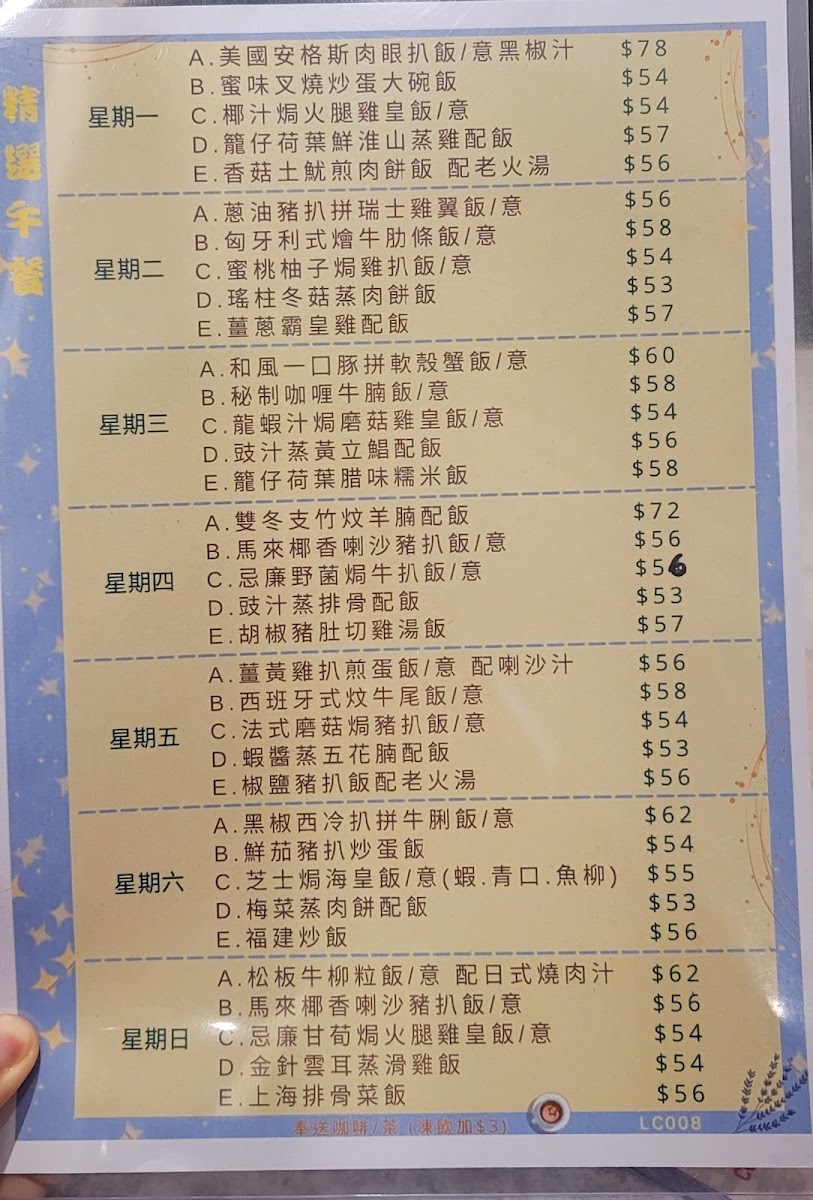 精選午餐
星期一
A.美國安格斯肉眼扒飯/意黑椒汁 $78
B.蜜味叉燒炒蛋大碗飯 $54
C.椰汁焗火腿雞皇飯/意 $54
D.籠仔荷葉鮮淮山蒸雞配飯 $57
E.香菇土魷煎肉餅飯 配老火湯 $56
星期二
A.蔥油豬扒拼瑞士雞翼飯/意 $56
B.匈牙利式燴牛肋條飯/意 $58
C.蜜桃柚子焗雞扒飯/意 $54
D.瑤柱冬菇蒸肉餅飯 $53
E.薑蔥霸皇雞配飯 $57
星期三
A.和風一口豚拼軟殼蟹飯/意 $60
B.秘制咖喱牛腩飯/意 $58
C.龍蝦汁焗磨菇雞皇飯/意 $54
D.豉汁蒸黃立鯧配飯 $56
E.籠仔荷葉腊味糯米飯 $58
星期四
A.雙冬支竹炆羊腩配飯 $72
B.馬來椰香喇沙豬扒飯/意 $56
C.忌廉野菌焗牛扒飯/意 $56
D.豉汁蒸排骨配飯 $53
E.胡椒豬肚切雞湯飯 $57
星期五
A.薑黃雞扒煎蛋飯/意 配喇沙汁 $56
B.西班牙式炆牛尾飯/意 $58
C.法式磨菇焗豬扒飯/意 $54
D.蝦醬蒸五花腩配飯 $53
E.椒鹽豬扒飯配老火湯 $56
星期六
A.黑椒西冷扒拼牛脷飯/意 $62
B.鮮茄豬扒炒蛋飯 $54
C.芝士焗海皇飯/意(蝦.青口.魚柳) $55
D.梅菜蒸肉餅配飯 $53
E.福建炒飯 $56
星期日
A.松板牛柳粒飯/意 配日式燒肉汁 $62
B.馬來椰香喇沙豬扒飯/意 $56
C.忌廉甘荀焗火腿雞皇飯/意 $54
D.金針雲耳蒸滑雞飯 $54
E.上海排骨菜飯 $56
奉送咖啡/茶 (凍飲加$3)
LC008